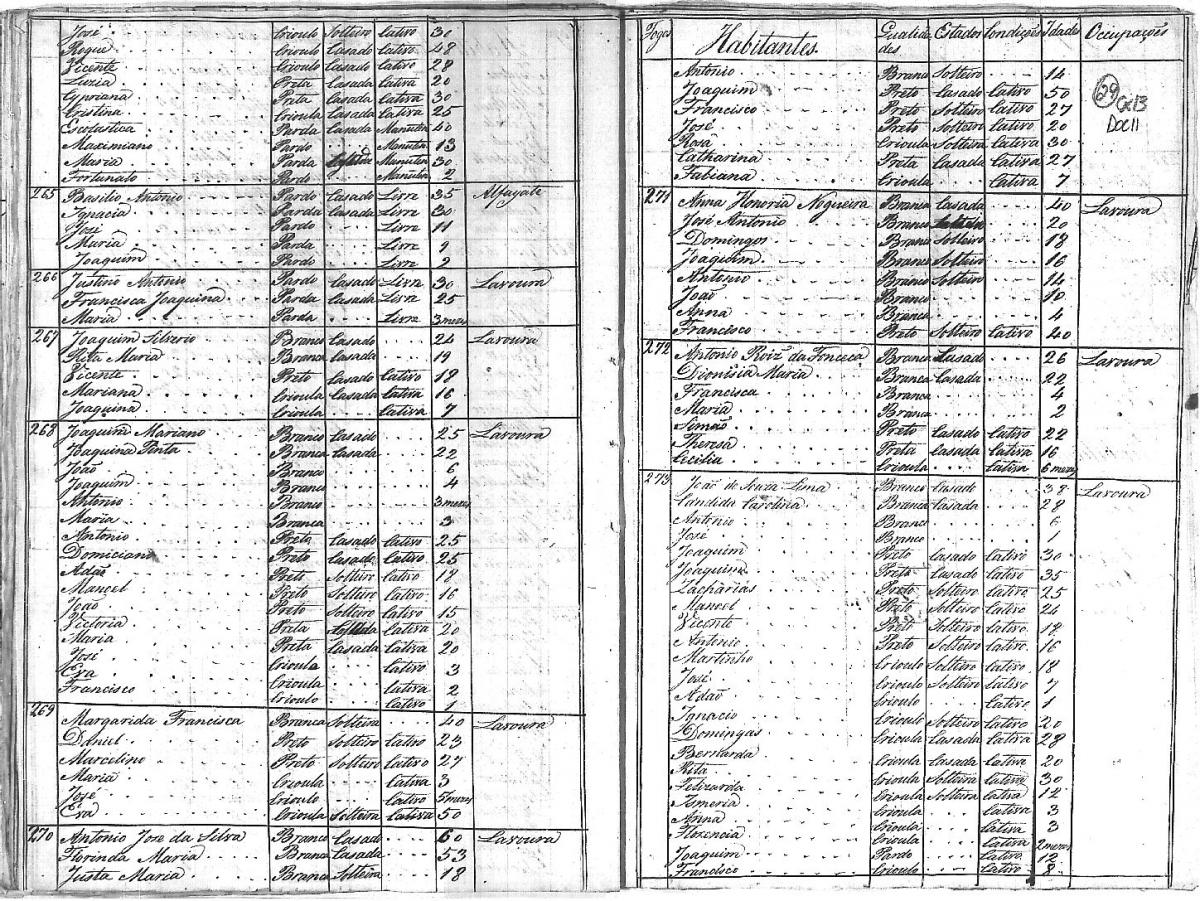 José Crioulo Solteiro Cativo 30
Roque Crioulo Casado Cativo 48
Vicente Crioulo Casado Cativo 28
Luzia Preta Casada Cativa 20
Cypriana Preta Casada Cativa 30
Cristina Crioula Casada Cativa 25
Escolastica Parda Casada 40
Maximiano Pardo 13
Maria Parda 30
Fortunato Pardo 2
265 Basilio Antonio Pardo Casado Livre 35 Alfayate
Ignacia Parda Casada Livre 30
José Pardo Livre 11
Maria Parda Livre 9
Joaquim Pardo Livre 2
266 Justino Antonio Pardo Casado Livre 30 Lavoura
Francisca Joaquina Parda Casada Livre 25
Maria Parda Livre 3 mezes
267 Joaquim Silverio Branco Casado 24 Lavoura
Rita Maria Branca Casada 19
Vicente Preto Casado Cativo 18
Mariana Crioula Casada Cativa 16
Joaquina Crioula Cativa 7
268 Joaquim Mariano Branco Casado 25 Lavoura
Joaquina Pinta Branca Casada 22
João Branco 6
Joaquim Branco 4
Antonio Branco 3 mezes
Maria Branca 3
Antonio Preto Casado Cativo 25
Domiciano Preto Casado Cativo 25
Adão Preto Solteiro Cativo 18
Manoel Preto Solteiro Cativo 16
João Preto Solteiro Cativo 15
Victoria Preta Cativa 20
Maria Preta Casada Cativa 20
José Crioulo Cativo 3
Eva Crioula Cativa 2
Francisco Crioulo Cativo 1
269 Margarida Francisca Branca Solteira 40 Lavoura
Daniel Preto Solteiro Cativo 23
Marcelino Preto Solteiro Cativo 27
Maria Crioula Cativa 3
José Crioulo Cativo 5 mezes
Eva Crioula Solteira Cativa 50
270 Antonio Joze da Silva Branco Casado 60 Lavoura
Florinda Maria Branca Casada 53
Justa Maria Branca Solteira 18
Fogos Habitantes Qualidades Estados Condições Idades Occupações
Antonio Branco Solteiro 14
Joaquim Preto Casado Cativo 50
Francisco Preto Solteiro Cativo 27
José Preto Solteiro Cativo 20
Rosa Crioula Solteira Cativa 30
Catharina Preta Casada Cativa 27
Fabiana Crioula Cativa 7
29 CX13
DOC11
271 Anna Honoria Nogueira Branca Casada 40 Lavoura
José Antonio Branco 20
Domingos Branco Solteiro 18
Joaquim Branco Solteiro 16
Antonio Branco Solteiro 14
João Branco 10
Anna Branca 4
Francisco Preto Solteiro Cativo 40
272 Antonio Roiz da Fonceca Branco Casado 26 Lavoura
Dionisia Maria Branca Casada 22
Francisca Branca 4
Maria Branca 2
Simão Preto Casado Cativo 22
Theresa Preta Casada Cativa 16
Cecilia Crioula Cativa 6 mezes
273 João de Souza Lima Branco Casado 38 Lavoura
Candida Carolina Branca Casada 28
Antonio Branco 6
José Branco 1
Joaquim Preto Casado Cativo 30
Joaquim Preto Casado Cativo 35
Zacharias Preto Solteiro Cativo 25
Manoel Preto Solteiro Cativo 24
Vicente Preto Solteiro Cativo 18
Antonio Preto Solteiro Cativo 16
Martinho Crioulo Solteiro Cativo 18
José Crioulo Solteiro Cativo 7
Adão Crioulo Cativo 1
Ignacio Crioulo Solteiro Cativo 20
Domingas Crioula Casada Cativa 28
Bernarda Crioula Casada Cativa 20
Rita Crioula Solteira Cativa 30
Felizarda Crioula Solteira Cativa 12
Ismeria Crioula Cativa 3
Anna Crioula Cativa 3
Florencia Crioula Cativa 2 mezes
Joaquim Pardo Cativo 12
Francisco Crioulo Cativo 8